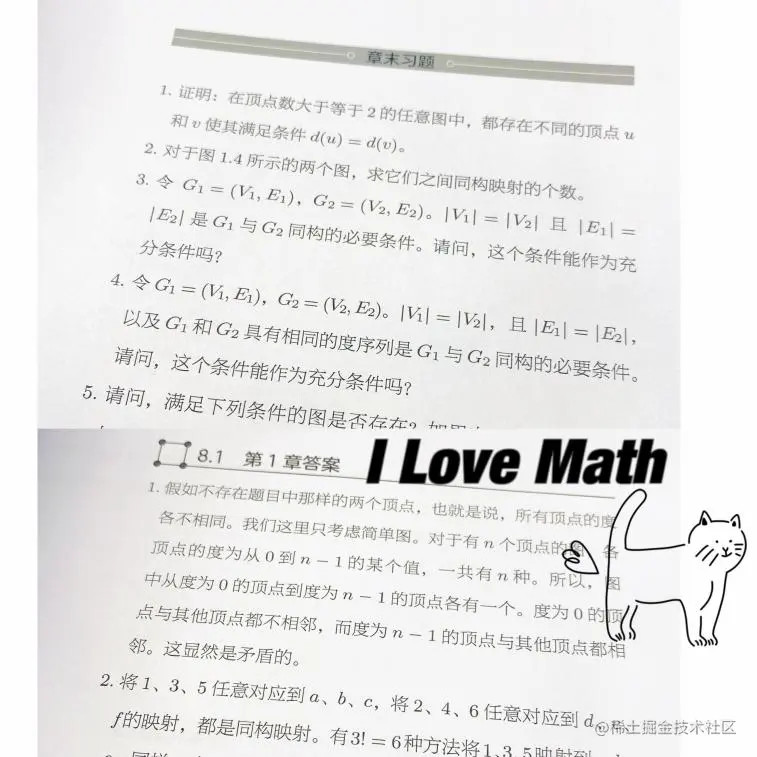 章末习题
1. 证明：在顶点数大于等于 2 的任意图中，都存在不同的顶点 u
和 v 使其满足条件 d(u) = d(v)。
2. 对于图 1.4 所示的两个图，求它们之间同构映射的个数。
3. 令 G₁ = (V₁, E₁)，G₂ = (V₂, E₂)。|V₁| = |V₂| 且 |E₁| =
|E₂| 是 G₁ 与 G₂ 同构的必要条件。请问，这个条件能作为充
分条件吗？
4. 令 G₁ = (V₁, E₁)，G₂ = (V₂, E₂)。|V₁| = |V₂|，且 |E₁| = |E₂|，
以及 G₁ 和 G₂ 具有相同的度序列是 G₁ 与 G₂ 同构的必要条件。
请问，这个条件能作为充分条件吗？
5. 请问，满足下列条件的图是否存在？
8.1 第 1 章答案
I Love Math
1. 假如不存在题目中那样的两个顶点，也就是说，所有顶点的度
各不相同。我们这里只考虑简单图。对于有 n 个顶点的 各
顶点的度为从 0 到 n − 1 的某个值，一共有 n 种。所以，图
中从度为 0 的顶点到度为 n − 1 的顶点各有一个。度为 0 的顶
点与其他顶点都不相邻，而度为 n − 1 的顶点与其他顶点都相
邻。这显然是矛盾的。
2. 将 1、3、5 任意对应到 a、b、c，将 2、4、6 任意对应到 d
f的映射，都是同构映射。有3! = 6种方法将1、3、5映射到
@稀土掘金技术社区